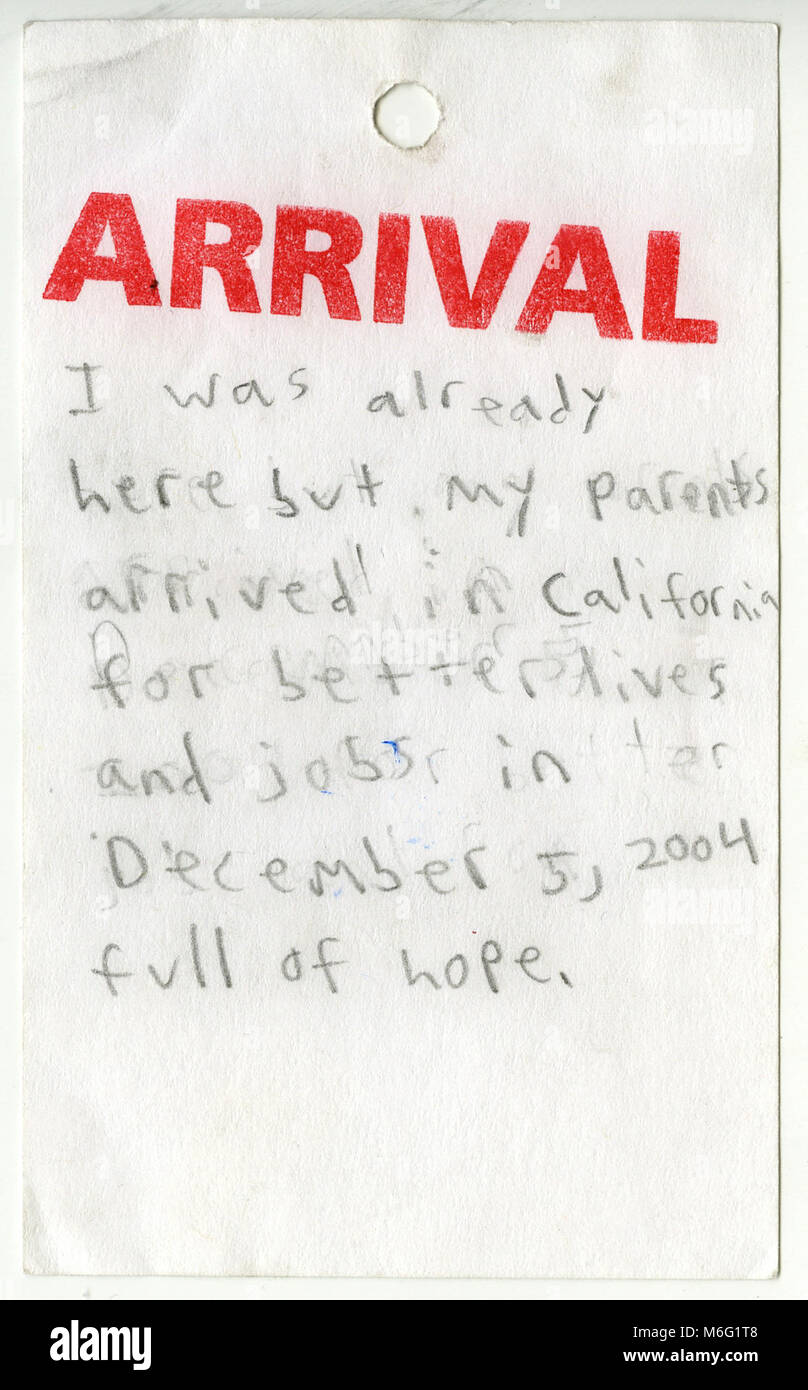 ARRIVAL
I was already
here but my parents
arrived in California
for better lives
and jobs in
December 5, 2004
full of hope.
alamy
Image ID: M6G1T8
www.alamy.com